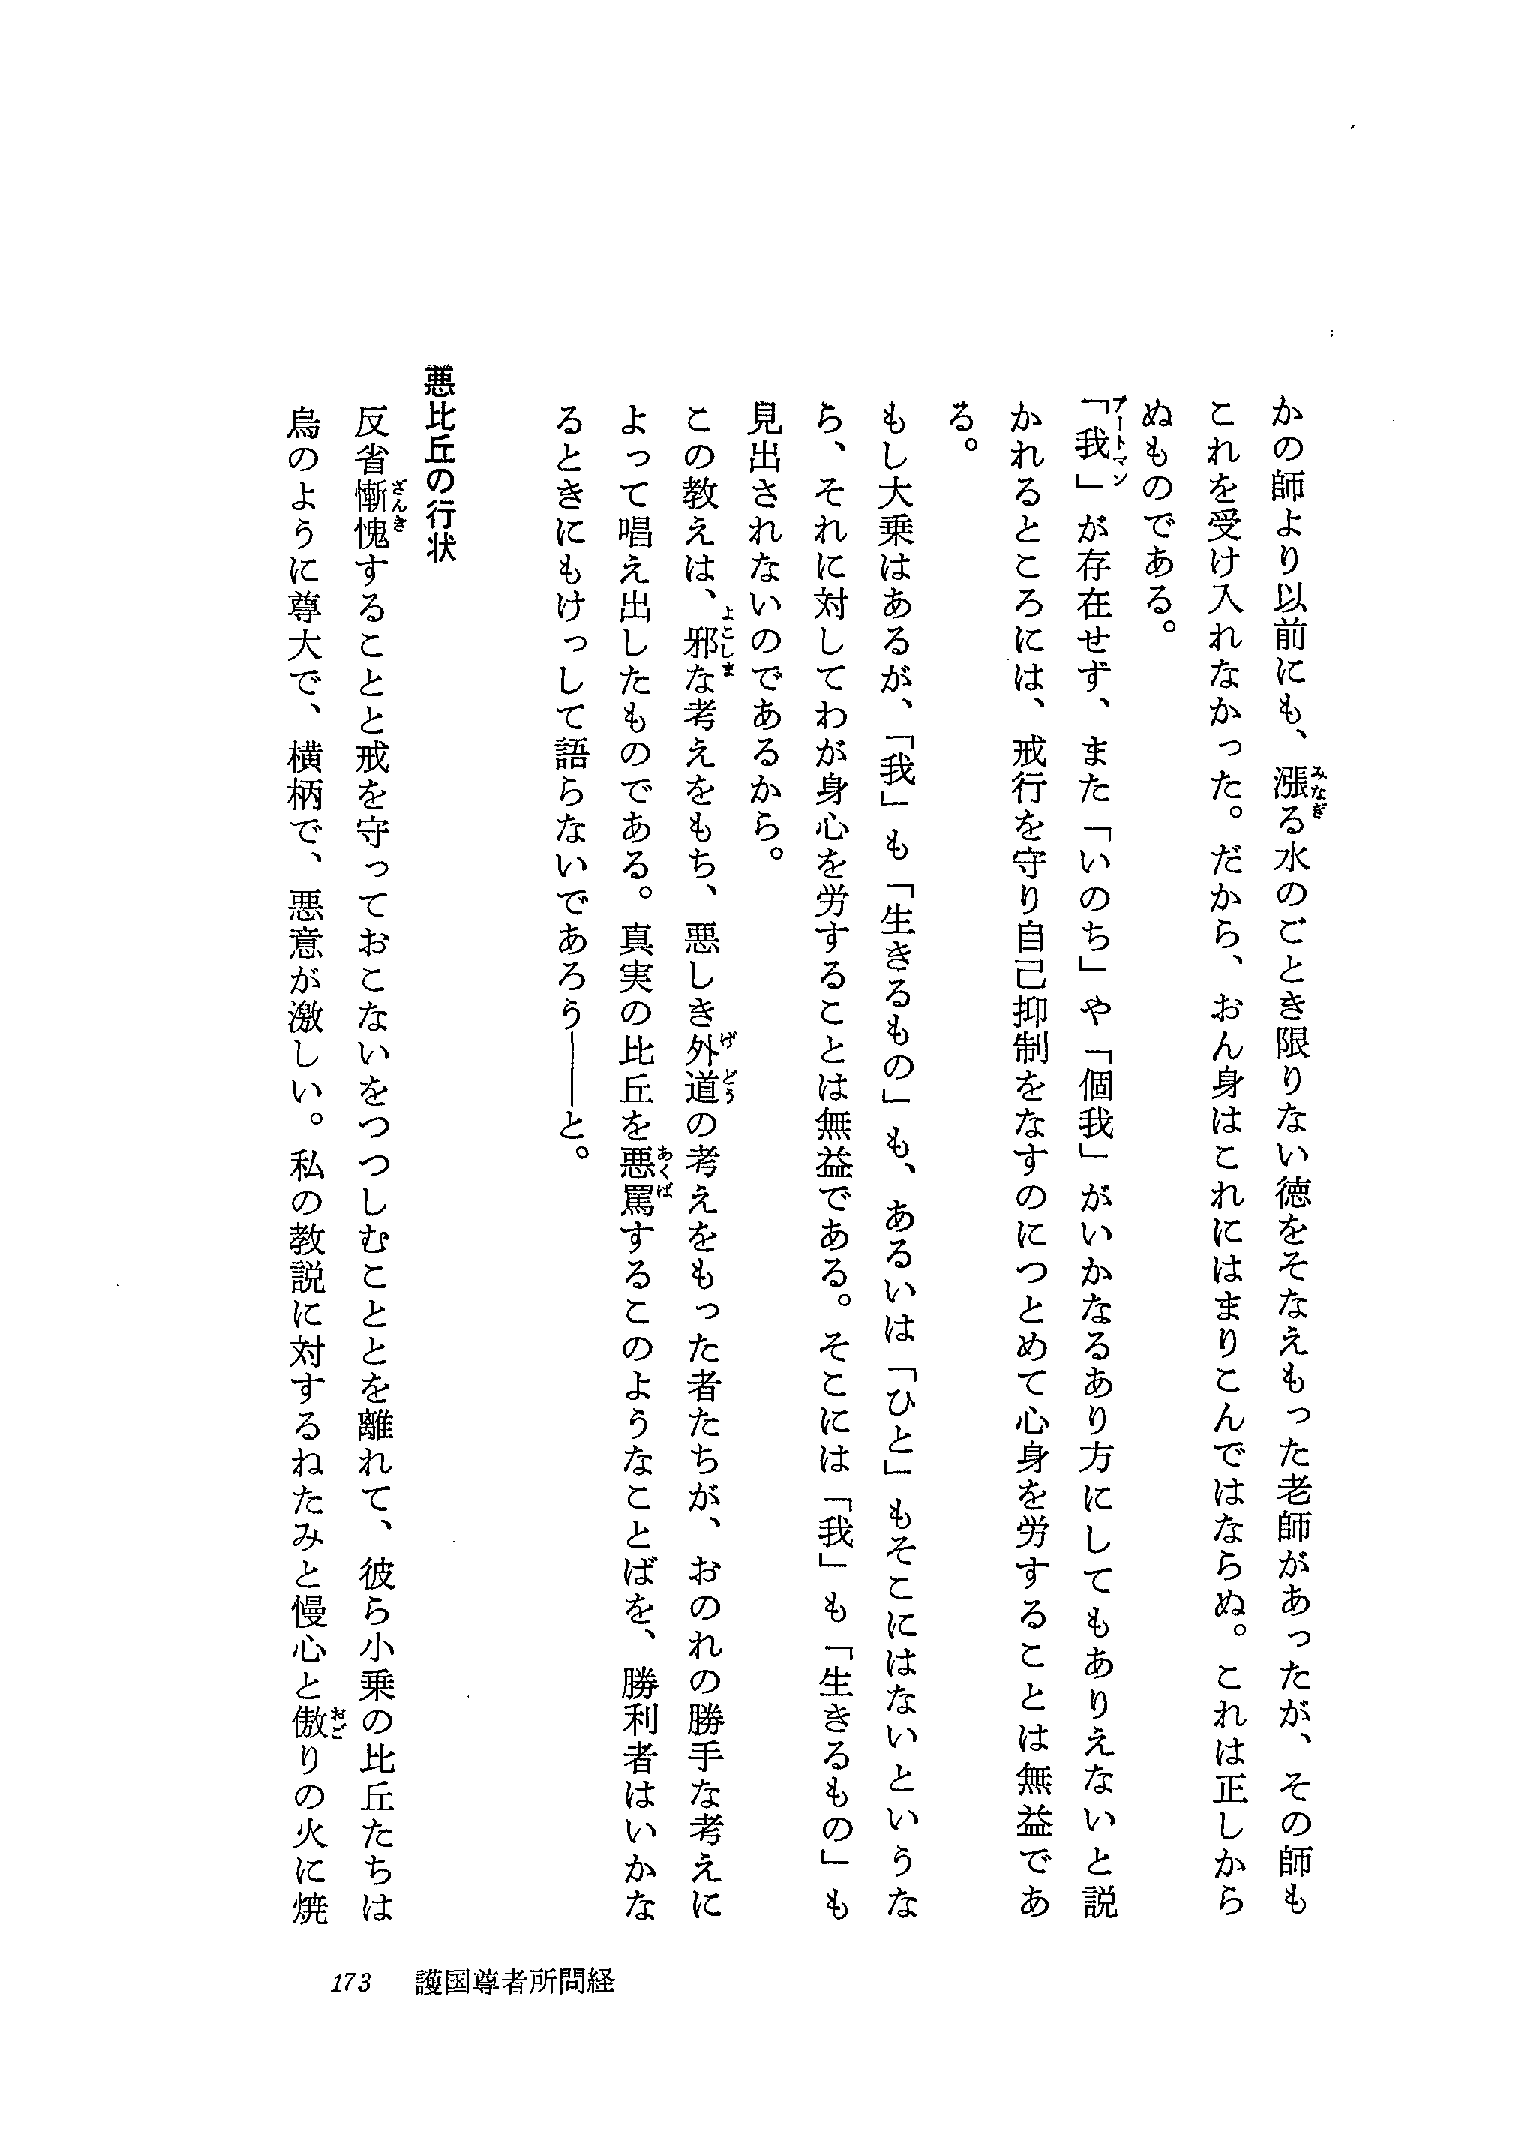 かの師より以前にも、漲る水のごとき限りない徳をそなえもった老師があったが、その師も
これを受け入れなかった。だから、おん身はこれにはまりこんではならぬ。これは正しから
ぬものである。
「我」が存在せず、また「いのち」や「個我」がいかなるあり方にしてもありえないと説
かれるところには、戒行を守り自己抑制をなすのにつとめて心身を労することは無益であ
る。
もし大乗はあるが、「我」も「生きるもの」も、あるいは「ひと」もそこにはないというな
ら、それに対してわが身心を労することは無益である。そこには「我」も「生きるもの」も
見出されないのであるから。
この教えは、邪な考えをもち、悪しき外道の考えをもった者たちが、おのれの勝手な考えに
よって唱え出したものである。真実の比丘を悪罵するこのようなことばを、勝利者はいかな
るときにもけっして語らないであろう――と。
悪比丘の行状
反省慚愧することと戒を守っておこないをつつしむこととを離れて、彼ら小乗の比丘たちは
烏のように尊大で、横柄で、悪意が激しい。私の教説に対するねたみと慢心と傲りの火に焼
173 護国尊者所問経